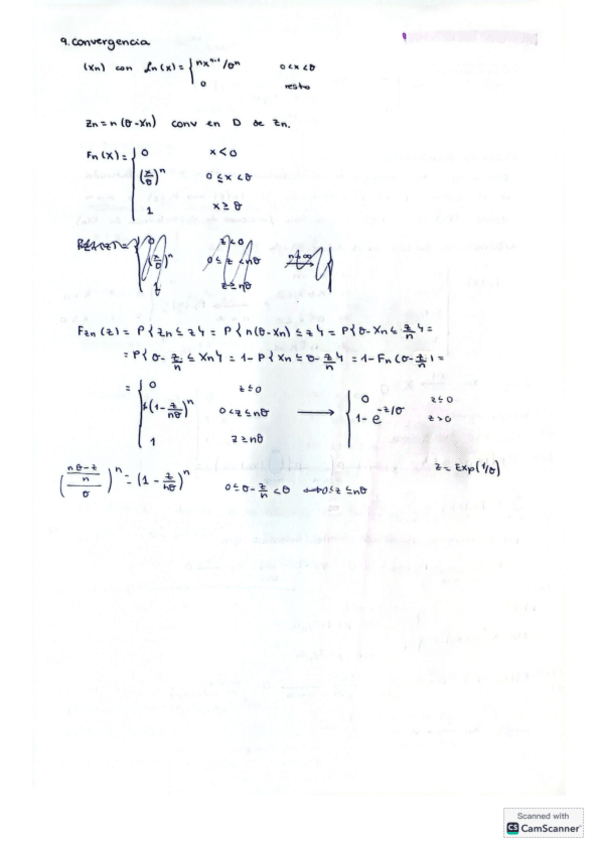 9. convergencia
(Xn) con fn(x) = { nxⁿ⁻¹/θⁿ 0<x<θ
0 resto
Zn = n(θ-Xn) conv en D de Zn.
Fn(x) = { 0 x<0
(x/θ)ⁿ 0≤x<θ
1 x≥θ
0 z<0
(z/θ)ⁿ 0≤z<nθ n→∞
1 z≥nθ
FZn(z) = P{Zn≤z} = P{n(θ-Xn)≤z} = P{θ-Xn≤z/n} =
= P{θ-z/n≤Xn} = 1-P{Xn≤θ-z/n} = 1-Fn(θ-z/n) =
= { 0 z≤0
(1-z/nθ)ⁿ 0<z≤nθ ⟶ { 0 z≤0
1-e^(-z/θ) z>0
1 z≥nθ
z = Exp(1/θ)
((nθ-z/n)/θ)ⁿ = (1-z/nθ)ⁿ 0≤θ-z/n<θ 0≤z≤nθ
Scanned with
CS CamScanner